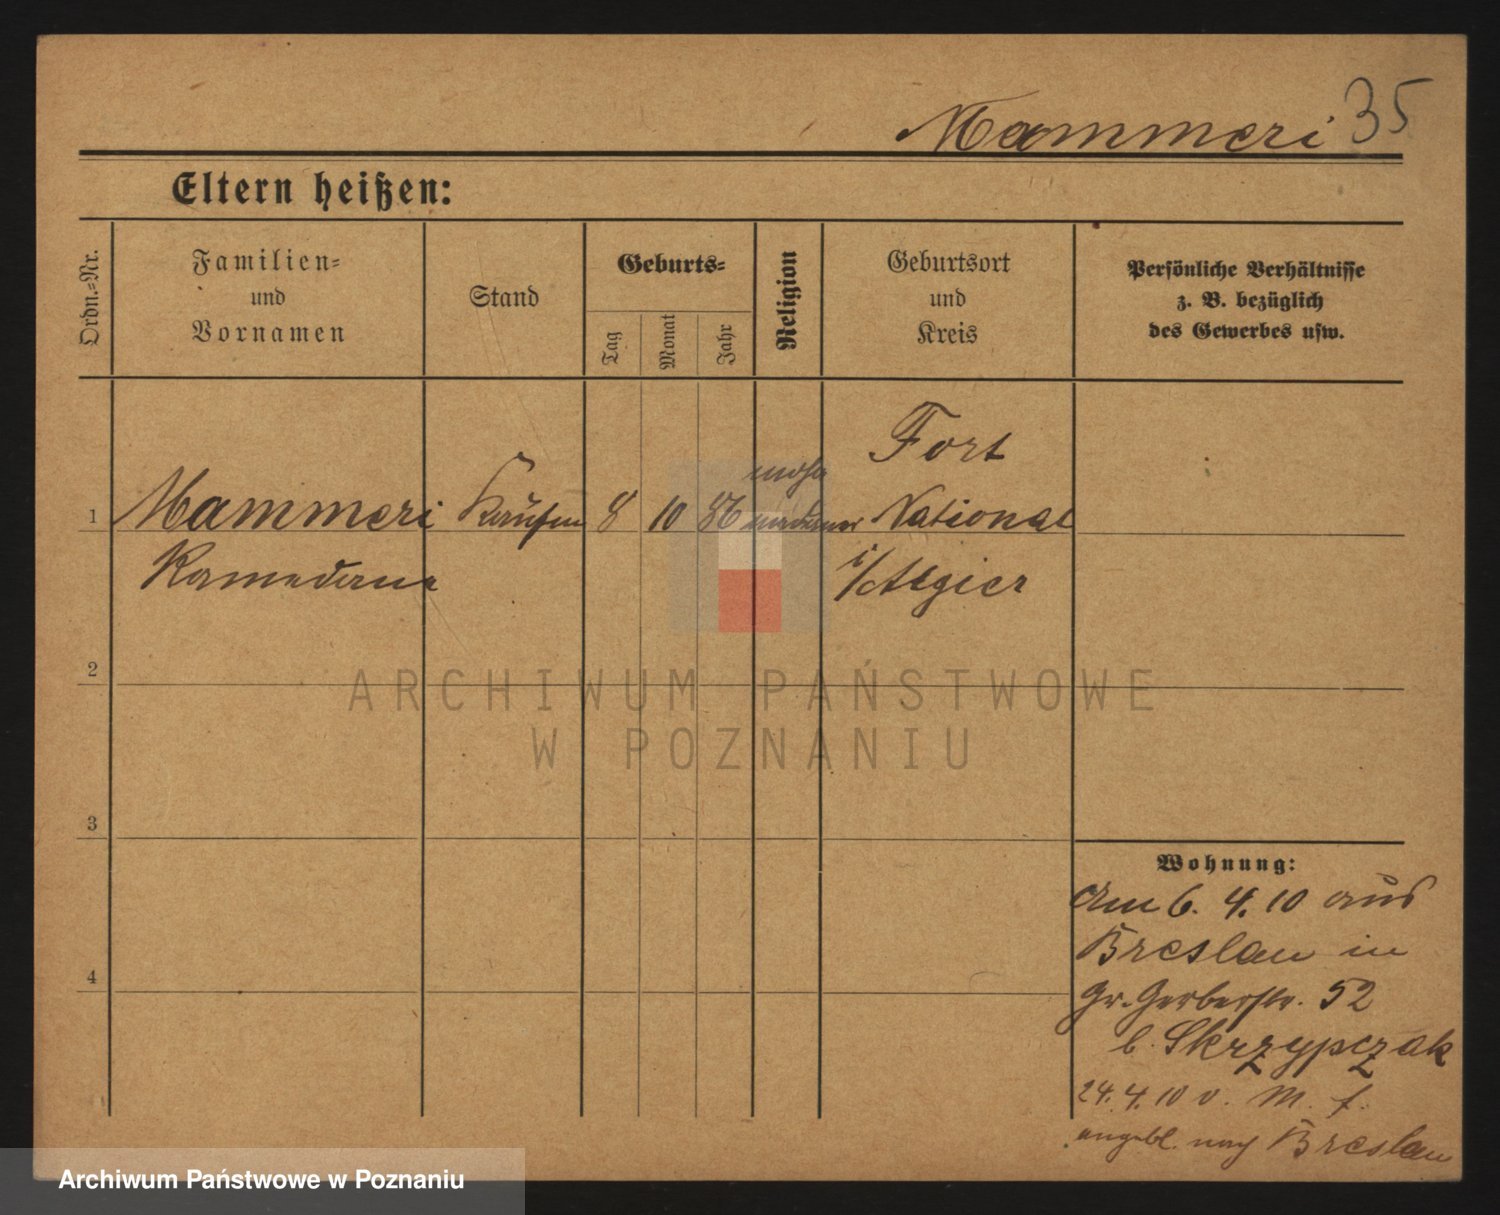 Mammeri 35
Eltern heißen:
Ordn.-Nr.
Familien-
und
Vornamen
Stand
Geburts-
Tag
Monat
Jahr
Religion
Geburtsort
und
Kreis
Persönliche Verhältnisse
z. B. bezüglich
des Gewerbes usw.
1
Mammeri
Ramedane
Kaufm
8
10
86
moha
medaner
Fort
National
i/Algier
2
3
4
Wohnung:
Am 6. 4. 10 aus
Breslau in
Gr. Gerberstr. 52
b. Skrzypczak
24. 4. 10 v. M. f.
angebl. nach Breslau
ARCHIWUM PAŃSTWOWE
W POZNANIU
Archiwum Państwowe w Poznaniu